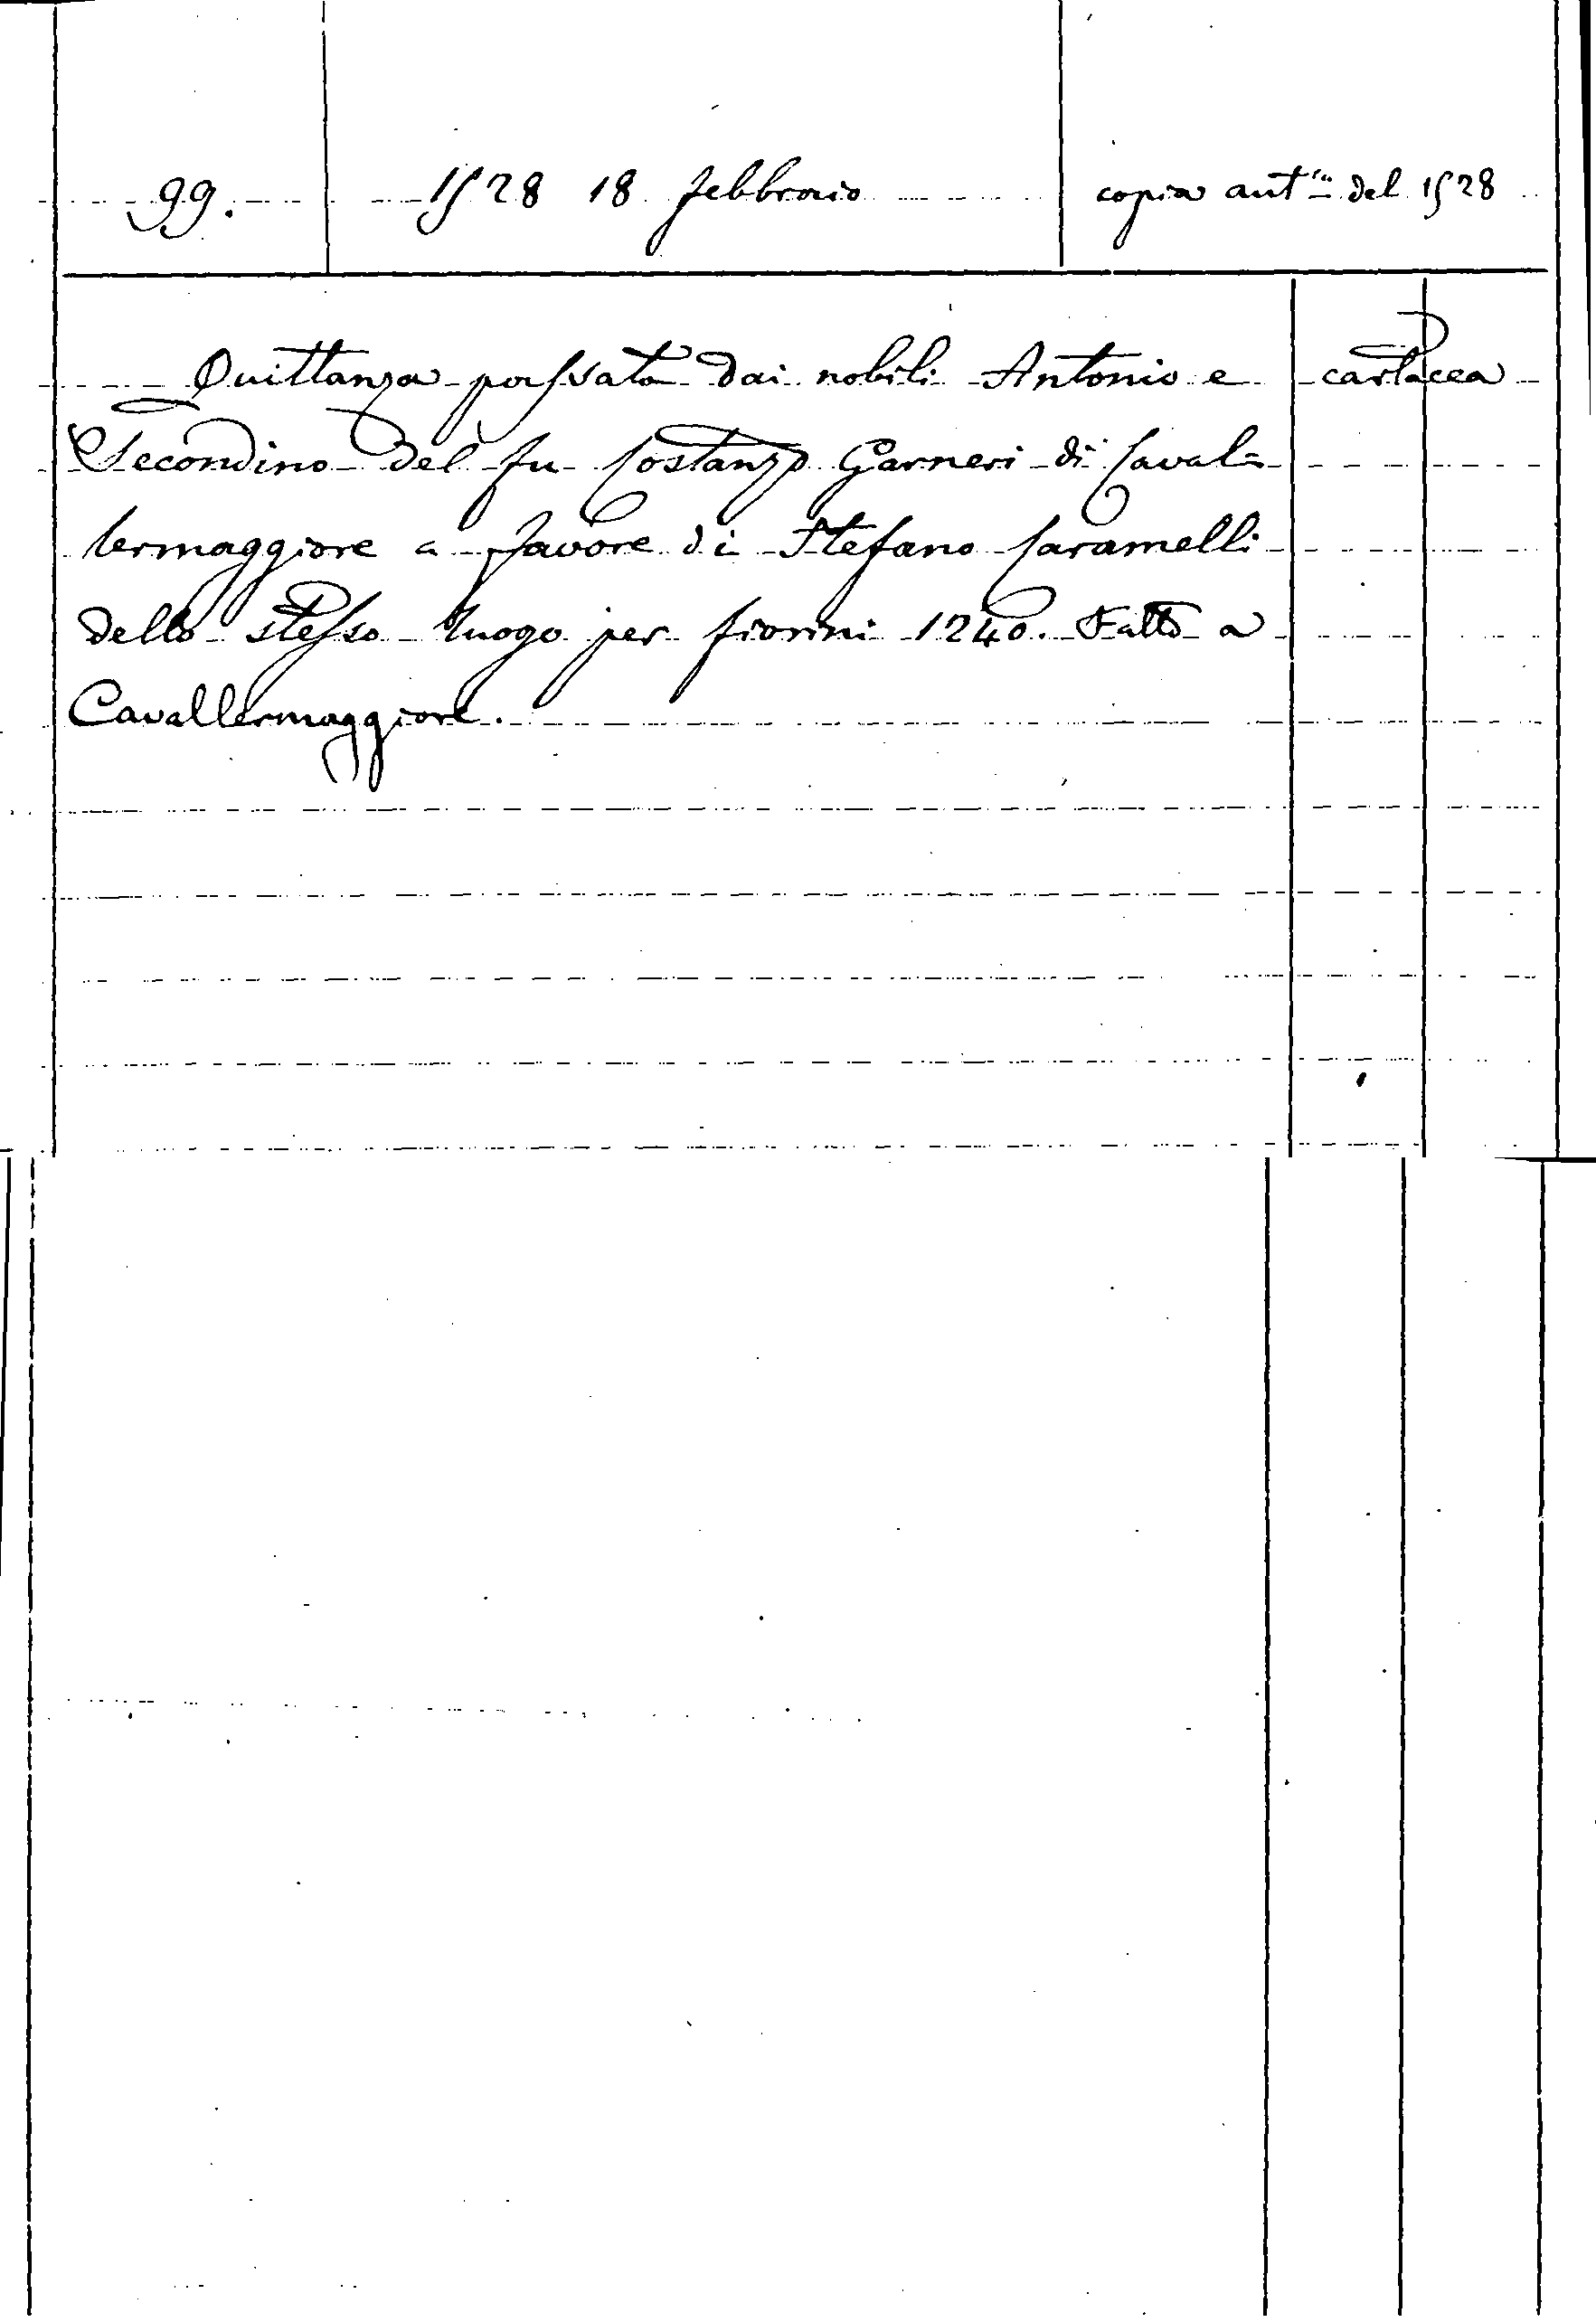 99. 1528 18 febbraio copia aut.ca del 1528
Quittanza passata dai nobili Antonio e cartacea
Secondino del fu Costanzo Garneri di Caval=
lermaggiore a favore di Stefano Caramelli
dello stesso luogo per fiorini 1240. Fatto a
Cavallermaggiore.